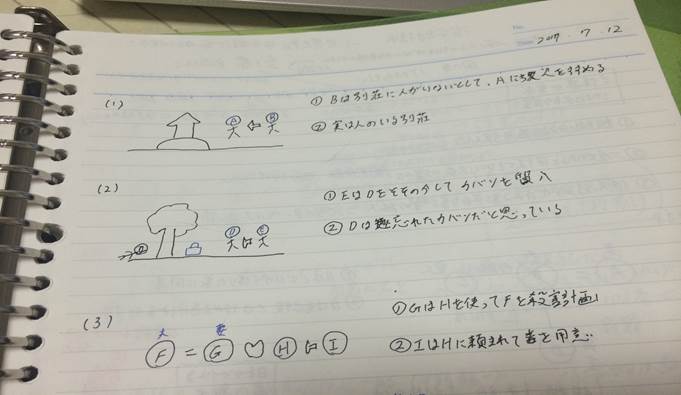 2017. 7. 12
(1)
① Bは別荘に人がいないとして、Aに放火をすすめる
A ⇐ B
② 実は人のいる別荘
(2)
① EはDをそそのかしてカバンを
② Dは忘れたカバンだと思っている
D E
(3)
① GはHを使ってFを殺害計画
夫 妻
F = G ♡ H I
② IはHに頼まれて毒を用意